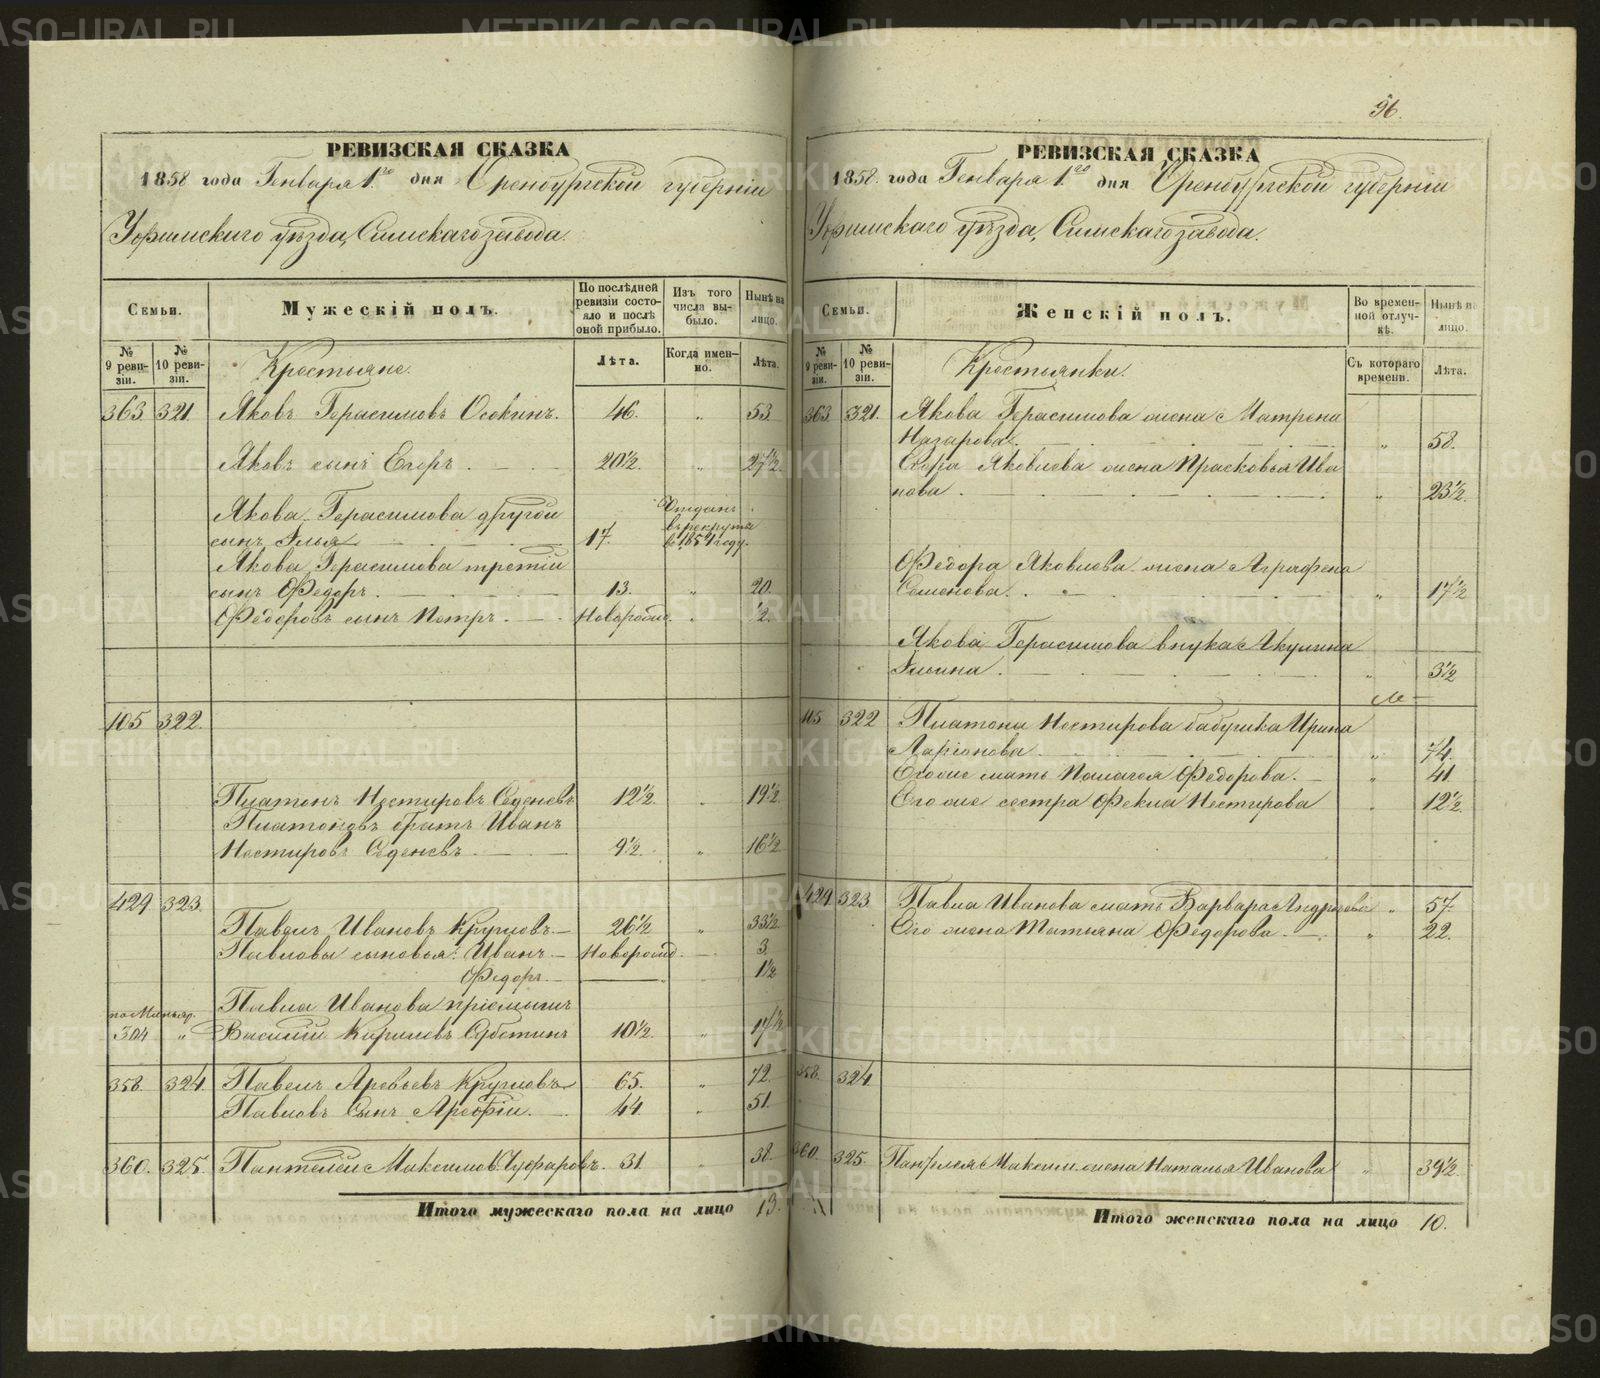 РЕВИЗСКАЯ СКАЗКА
1858 года Генваря 1го дня Оренбургской губернiи
Уфимскаго уѣзда, Симскаго завода.
Семьи.
Мужескiй полъ.
По послѣдней ревизiи состояло и послѣ оной прибыло.
Изъ того числа выбыло.
Нынѣ на лицо.
№ 9 ревизiи.
№ 10 ревизiи.
Крестьяне.
Лѣта.
Когда именно.
Лѣта.
363 321. Яковъ Герасимовъ Осокинъ. 46. „ 53
Яковъ сынъ Егоръ 20½. „ 27½.
Якова Герасимова другой
сынъ Илья 17. Отданъ въ рекруты въ 1854 году.
Якова Герасимова третiй
сынъ Ѳедоръ. 13. „ 20.
Ѳедоровъ сынъ Петръ. Новорожд. „ ½.
105 322.
Платонъ Нестировъ 12½. „ 19½
Платоновъ братъ Иванъ
Нестировъ 9½. „ 16½
429 323.
Павелъ Ивановъ Кругловъ 26½ „ 33½
Павловы сыновья: Иванъ Новорожд. 3
Ѳедоръ 1½
Павла Иванова прiемышъ
304 „ Василiй Кириловъ 10½. „ 17½
358. 324. Павелъ Кругловъ 65. „ 72.
Павловъ Сынъ 44. „ 51
360. 325. Пантелей Максимов. 31. „ 38.
Итого мужескаго пола на лицо 13.
96.
РЕВИЗСКАЯ СКАЗКА
1858. года Генваря 1го дня Оренбургской губернiи
Уфимскаго уѣзда, Симскаго завода.
Семьи.
Женскiй полъ.
Во временной отлучкѣ.
Нынѣ на лицо.
№ 9 ревизiи.
№ 10 ревизiи.
Крестьянки.
Съ котораго времени.
Лѣта.
363. 321. Якова Герасимова жена Матрена
Назарова. „ 58.
Егора Яковлева жена Прасковья Ива
нова. „ 23½.
Ѳедора Яковлева жена Аграфена
Семенова. „ 17½
Якова Герасимова внука Акулина
Ильина. „ 3½
105 322 Платона Нестирова бабушка Ирина
Ларiонова. „ 74.
Его же мать Палагея Ѳедорова. „ 41
Его же сестра Ѳекла Нестирова 12½
429 323 Павла Иванова мать Варвара „ 57.
Его жена Татьяна Ѳедорова. „ 22.
358. 324
360. 325. Пантелея Максим. жена Наталья Иванова „ 39½
Итого женскаго пола на лицо 10.
METRIKI.GASO-URAL.RU